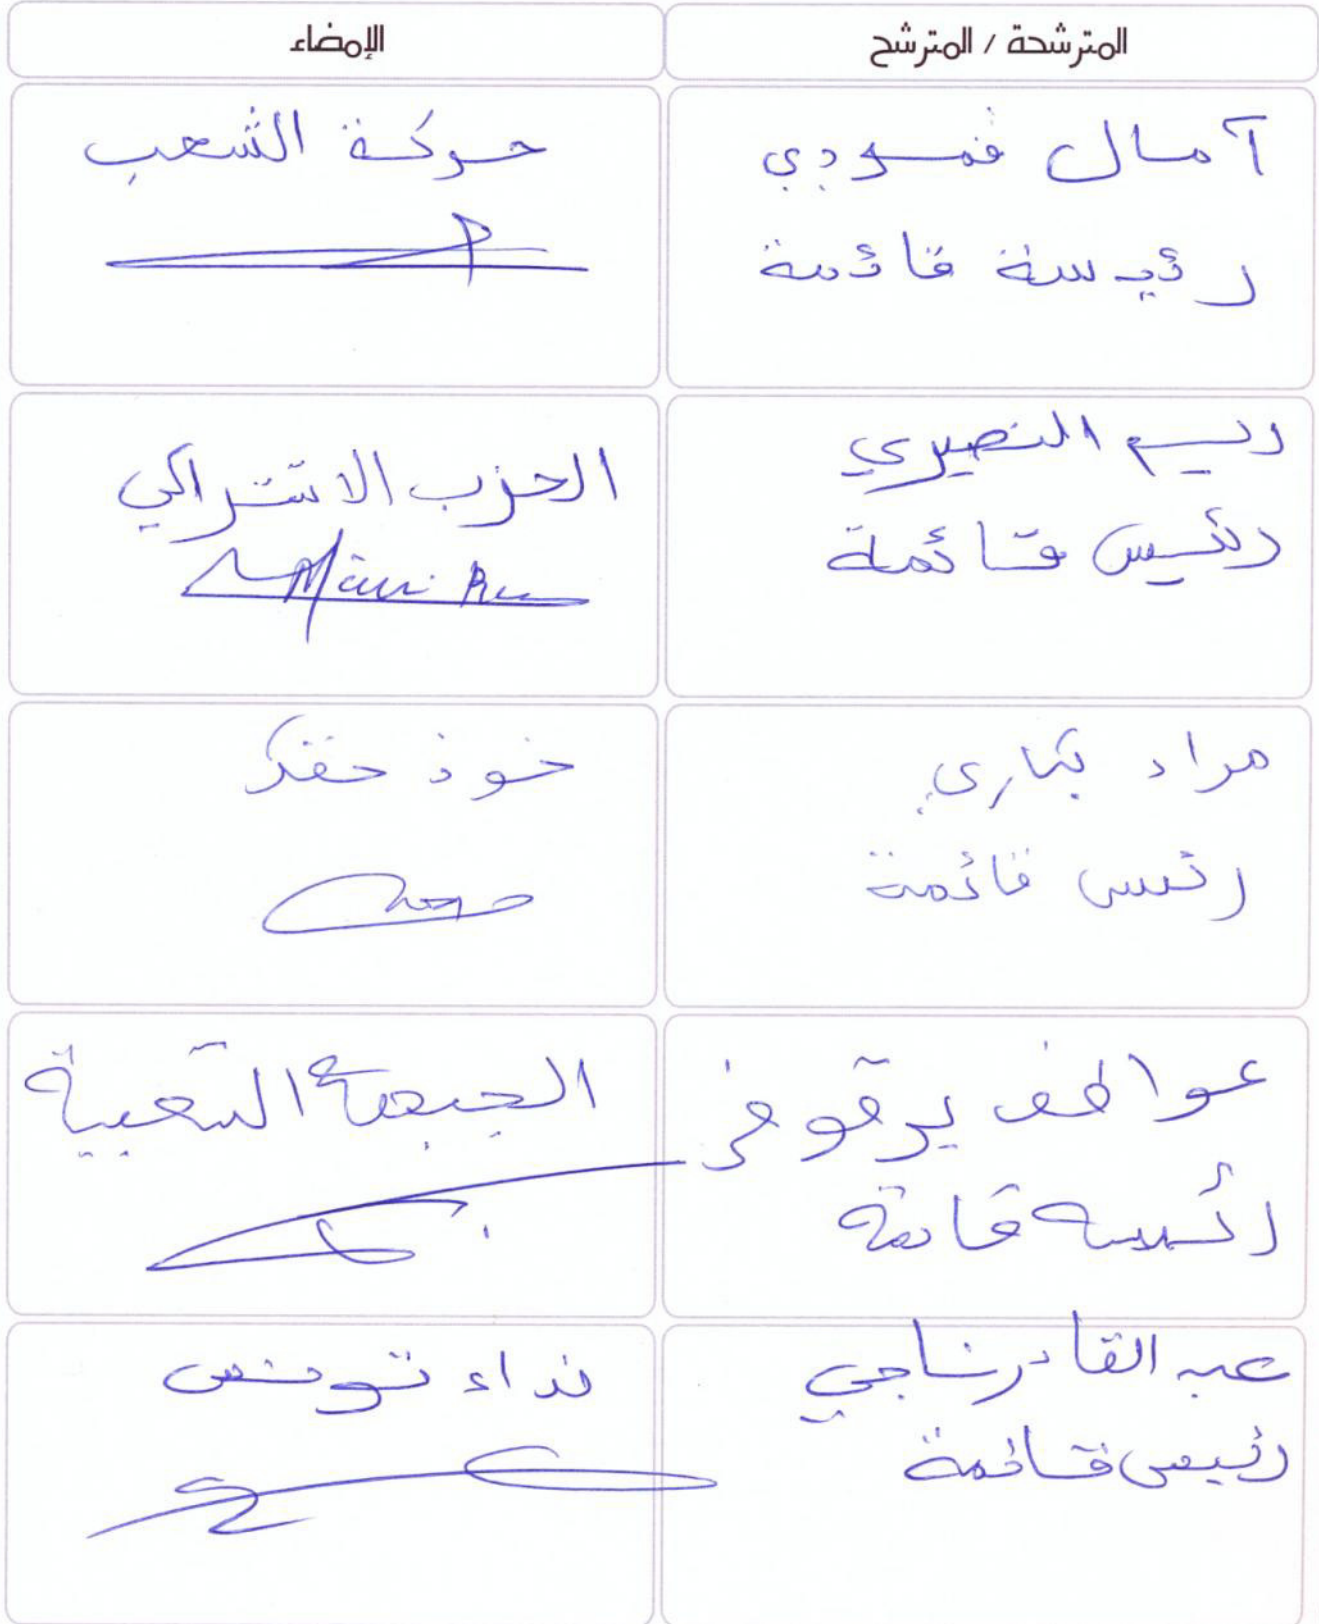 المترشحة / المترشح
الإمضاء
آمال قمودي
رئيسة قائمة
حركة الشعب
ريم النصيري
رئيس قائمة
الحزب الاشتراكي
مراد بكاري
رئيس قائمة
خوذ حقك
عواطف
رئيسة قائمة
الجبهة الشعبية
عبد القادر ناجي
رئيس قائمة
نداء تونس